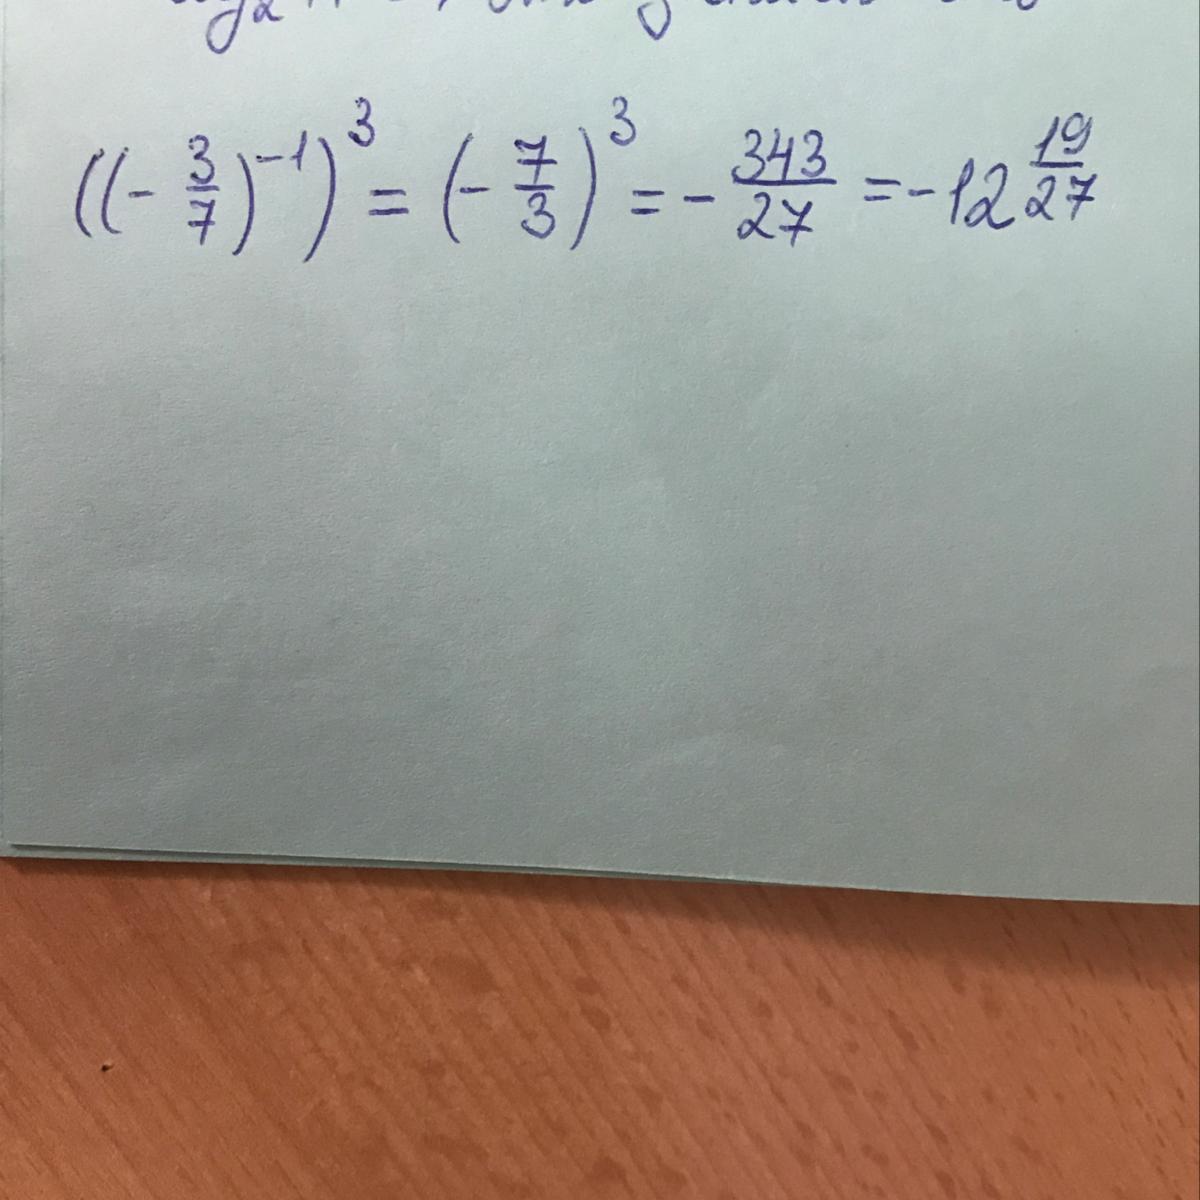 ((-3/7)^-1)^3 = (-7/3)^3 = -343/27 = -12 19/27